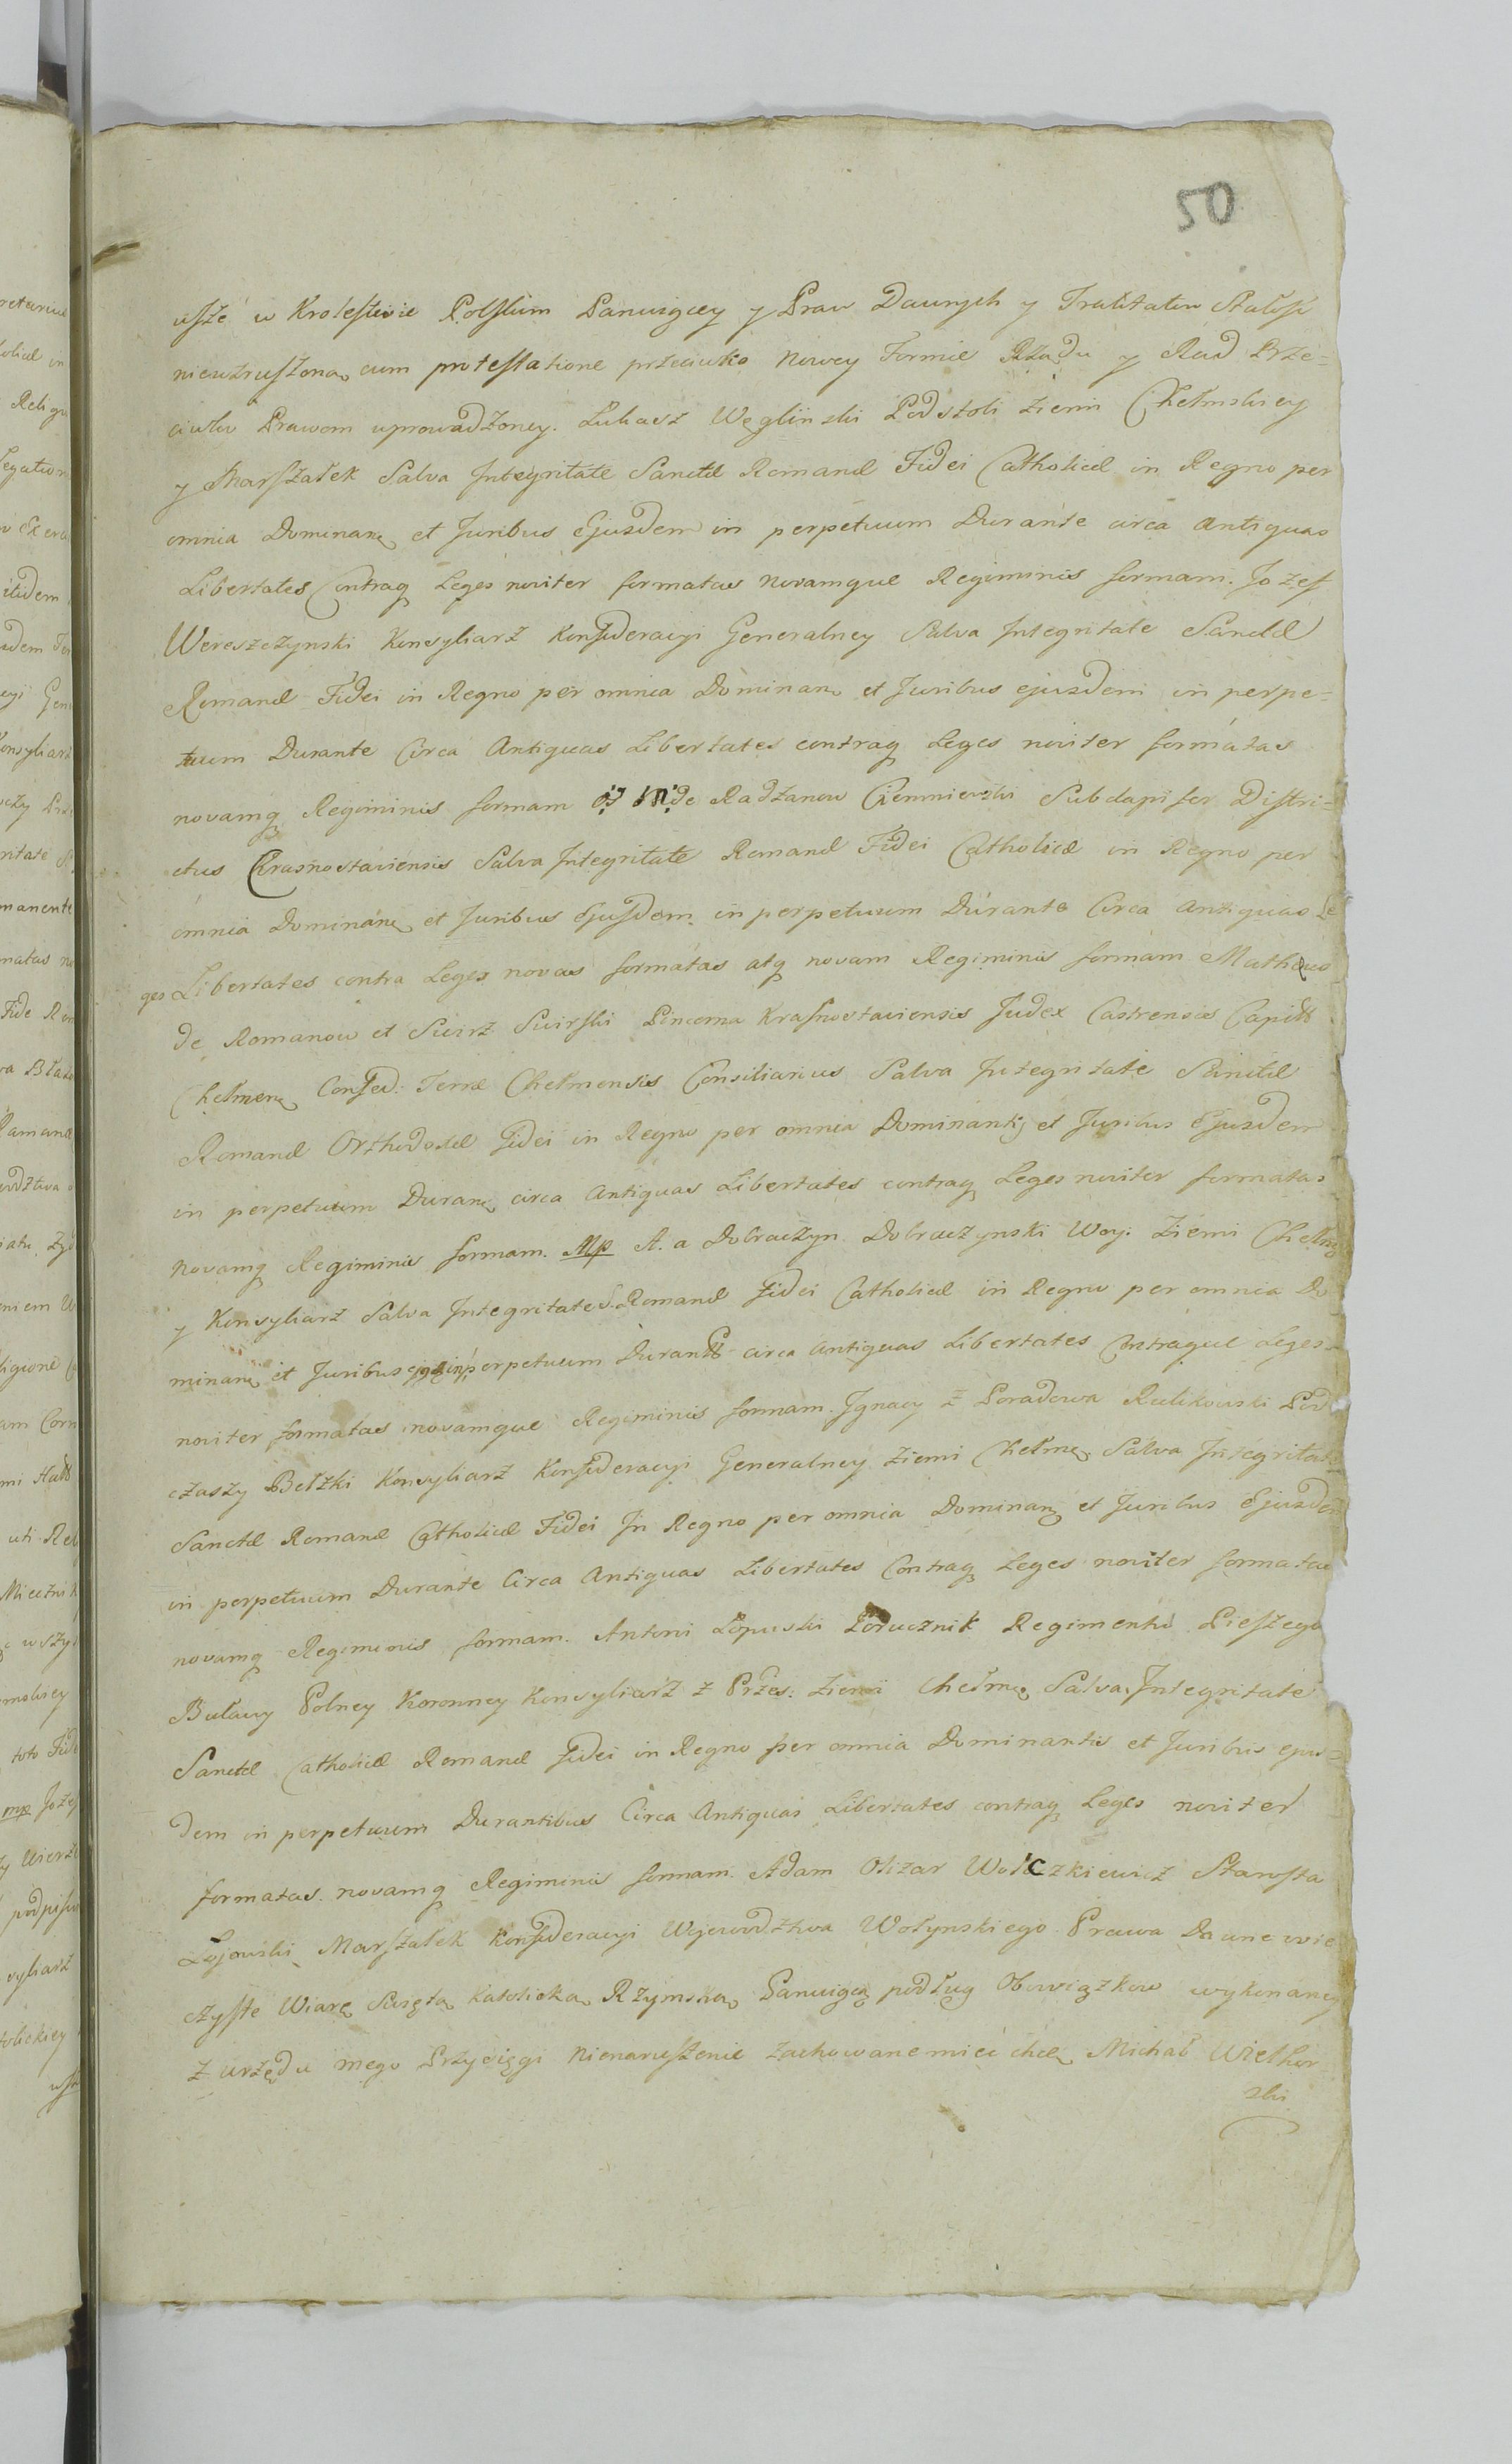 50
wſze w Kroleſtwie Polſkim Panuiącey y Praw Dawnych y Traktatow Całoſci
niewzruſzoną cum proteſtatione przeciwko Nowey Formie Rządu y Rad Prze=
ciwko Prawom uprowadzoney. Łukasz Węglinski Podstoli Ziemi Chełmskiey
y Marſzałek Salva Integritate Sanctæ Romanæ Fidei Catholicæ in Regno per
omnia Dominanę et Juribus Ejusdem in perpetuum Durante circa Antiquas
Libertates Contraq Leges noviter formatas Novamque Regiminis formam. Jozef
Wereszczynski Konsyliarz Konfederacyi Generalney Salva Integritate Sanctæ
Romanæ Fidei in Regno per omnia Dominanę et Juribus ejusdem in perpe=
tuum Durante Circa Antiquas Libertates contraq Leges noviter formatas
novamq Regiminis formam de Radzanow Ciemniewski Subdapifer Distri=
ctus Crasnostaviensis Salva Integritate Romanæ Fidei Catholicæ in Regno per
omnia Dominanę et Juribus Ejusdem in perpetuum Durante Circa Antiquas Le
ges Libertates contra Leges novas formatas atq novam Regiminis formam Matheus
de Romanow et Swirz Swirski Pincerna Krasnostaviensis Judex Castrensis Capitt
Chełmenę Confed: Terræ Chelmensis Consiliarius Salva Integritate Sanctæ
Romanæ Orthodoxæ Fidei in Regno per omnia Dominantis et Juribus Ejusdem
in perpetuum Duranę circa Antiquas Libertates contraq Leges noviter formatas
Novamq Regiminis formam. Mp A. a Dobraczyn Dobraczynski Woy: Ziemi Chełmę
y Konsyliarz Salva Integritate S. Romanæ Fidei Catholicæ in Regno per omnia Do
minanę et Juribus in perpetuum Durantt circa Antiquas Libertates Contraque Leges
noviter formatas novamque Regiminis formam. Ignacy z Poradowa Rulikowski Pod
czaszy Bełzki Konsyliarz Konfederacyi Generalney Ziemi Chełmę Salva Integritate
Sanctæ Romanæ Catholicæ Fidei In Regno per omnia Dominanę et Juribus Ejusdem
in perpetuum Durante Circa Antiquas Libertates Contraq Leges noviter formatas
novamq Regiminis formam. Antoni Łopuski Porucznik Regimentu Pieſzego
Buławy Polney Koronney Konsyliarz z Przes: Ziemi Chełmę Salva Integritate
Sanctæ Catholicæ Romanæ Fidei in Regno per omnia Dominantis et Juribus ejus=
dem in perpetuum Durantibus Circa Antiquas Libertates contraq Leges noviter
formatas novamq Regiminis formam. Adam Olizar Wołczkiewicz Staroſta
Łojowski Marſzałek Konfederacyi Wojewodztwa Wołynskiego Prawa Dawne wie
czyſte Wiarę Swiętą Katolicką Rzymską Panuiącą podług Obowiązkow wykonaney
z Urzędu mego Przysięgi Nienaruſzenie zachowane mieć chcę Michał Wielhor
ski